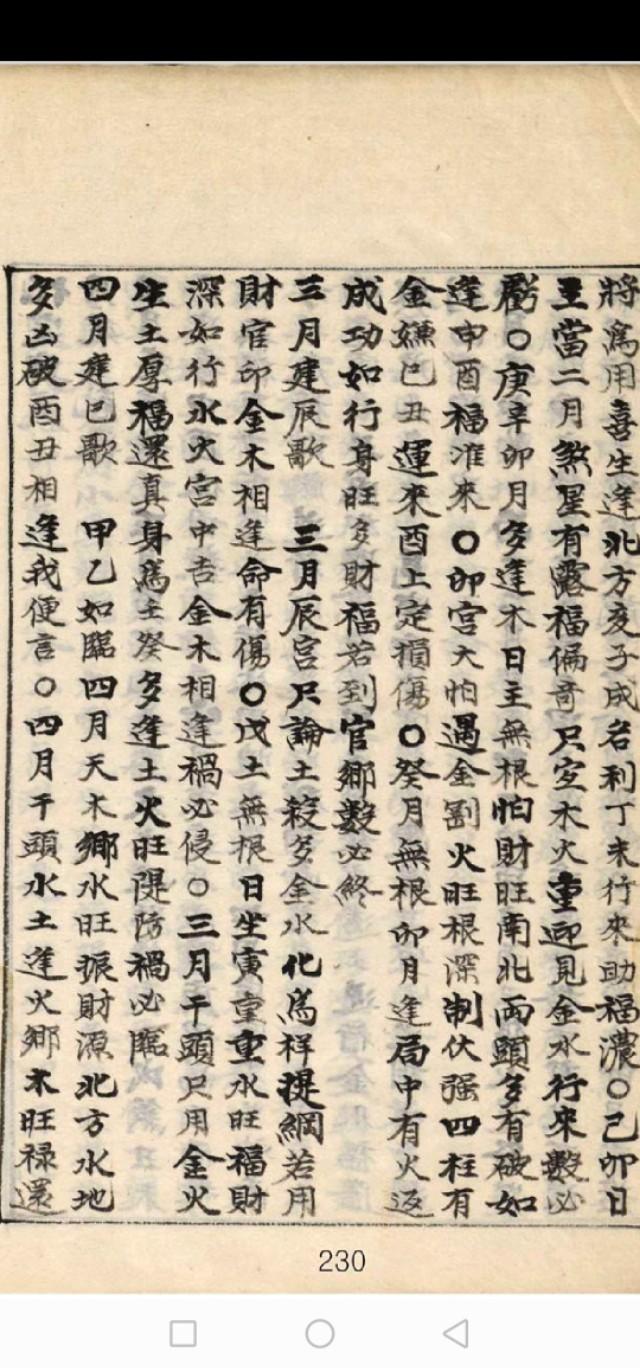 將為用喜生逢北方亥子成名利丁未行來助福濃〇己卯日
主當二月煞星有露福偏奇只宜木火重迎見金水行來數必
虧〇庚辛卯月多逢木日主無根怕財旺南北兩頭多有破如
逢申酉福淮來〇卯宮大怕遇金劉火旺根深制伏强四柱有
金嫌巳丑運來酉上定損傷〇癸月無根卯月逢局中有火返
成功如行身旺多財福若到官鄉數必終
三月建辰歌　三月辰宮只論土殺多金水化為祥提綱若用
財官印金木相逢命有傷〇戊土無根日坐寅重重水旺福財
深如行水火宮中吉金木相逢禍必侵〇三月干頭只用金火
生土厚福還真身為壬癸多逢土火旺隄防禍必臨
四月建巳歌　甲乙如臨四月天木鄉水旺振財源北方水地
多凶破酉丑相逢我便言〇四月干頭水土逢火鄉木旺祿還
230